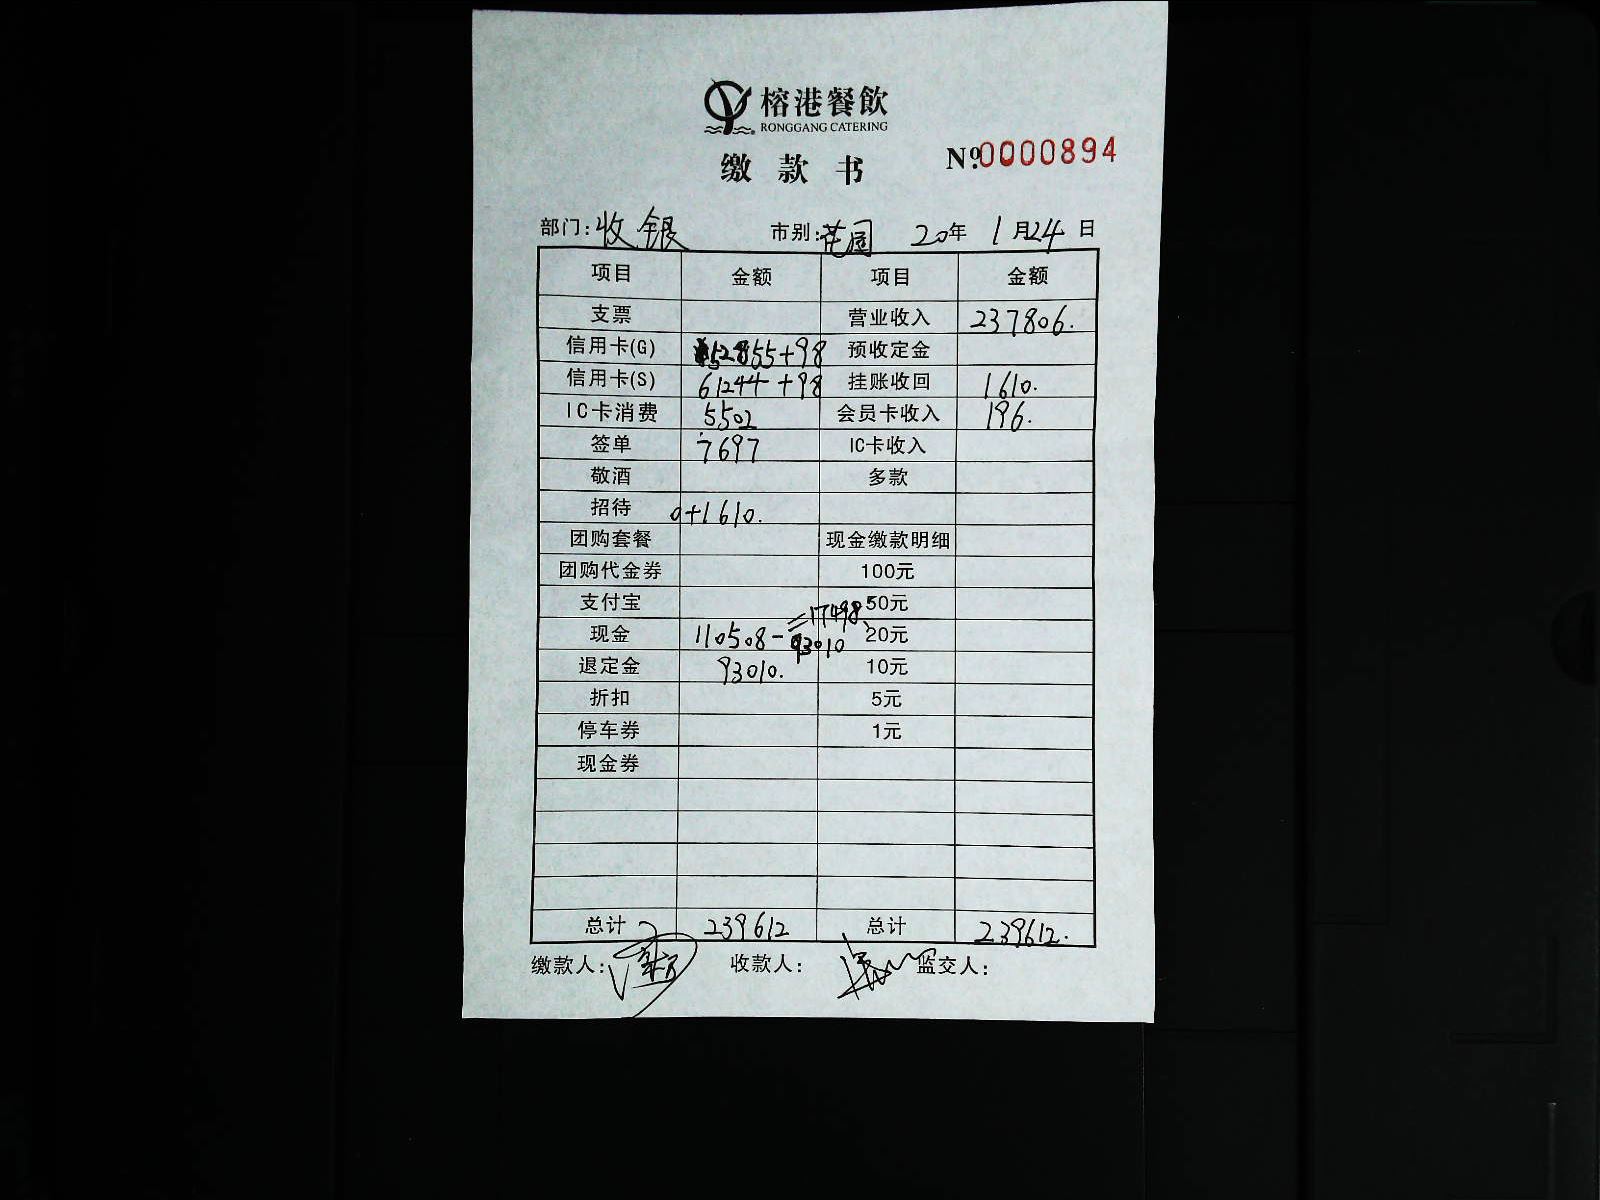 榕港餐飲
RONGGANG CATERING
缴款书 №0000894
部门:收银 市别:花园 20年1月24日
项目 金额 项目 金额
支票 营业收入 237806.
信用卡(G) 52855+98 预收定金
信用卡(S) 61244+98 挂账收回 1610.
IC卡消费 5502 会员卡收入 196.
签单 7697 IC卡收入
敬酒 多款
招待 0+1610.
团购套餐 现金缴款明细
团购代金券 100元
支付宝 50元
现金 110508-93010=17498 20元
退定金 93010. 10元
折扣 5元
停车券 1元
现金券
总计 239612 总计 239612.
缴款人: 收款人: 监交人: